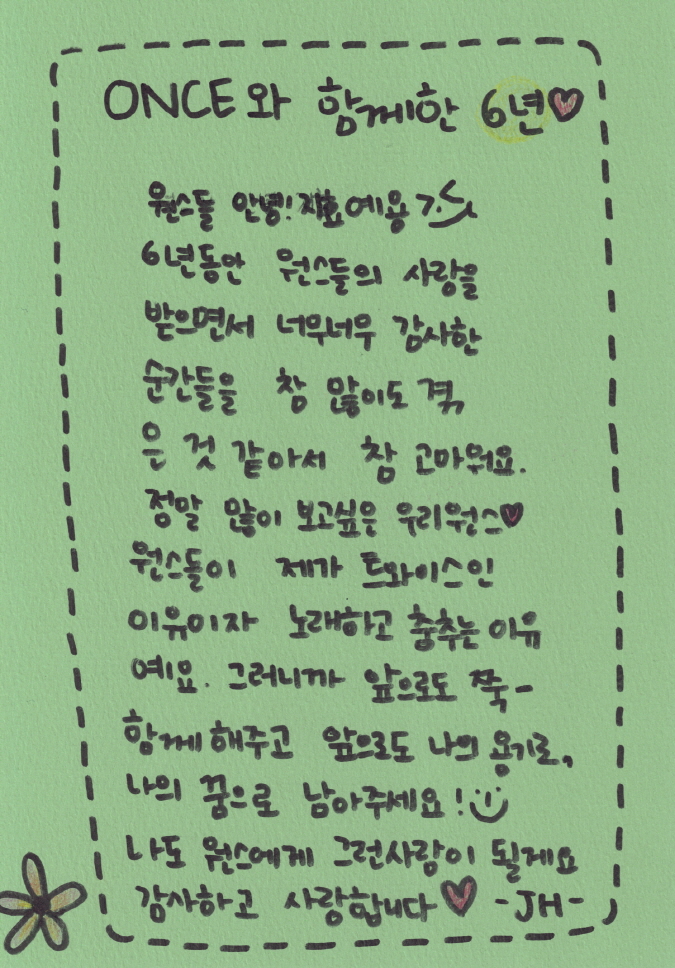 ONCE와 함께한 6년♡
원스들 안녕! 지효예용
6년동안 원스들의 사랑을
받으면서 너무너무 감사한
순간들을 참 많이도 겪
은 것 같아서 참 고마워요.
정말 많이 보고싶은 우리원스♥
원스들이 제가 트와이스인
이유이자 노래하고 춤추는 이유
예요. 그러니까 앞으로도 쭉-
함께 해주고 앞으로도 나의 용기로,
나의 꿈으로 남아주세요!
나도 원스에게 그런사람이 될게요
감사하고 사랑합니다♡ -JH-